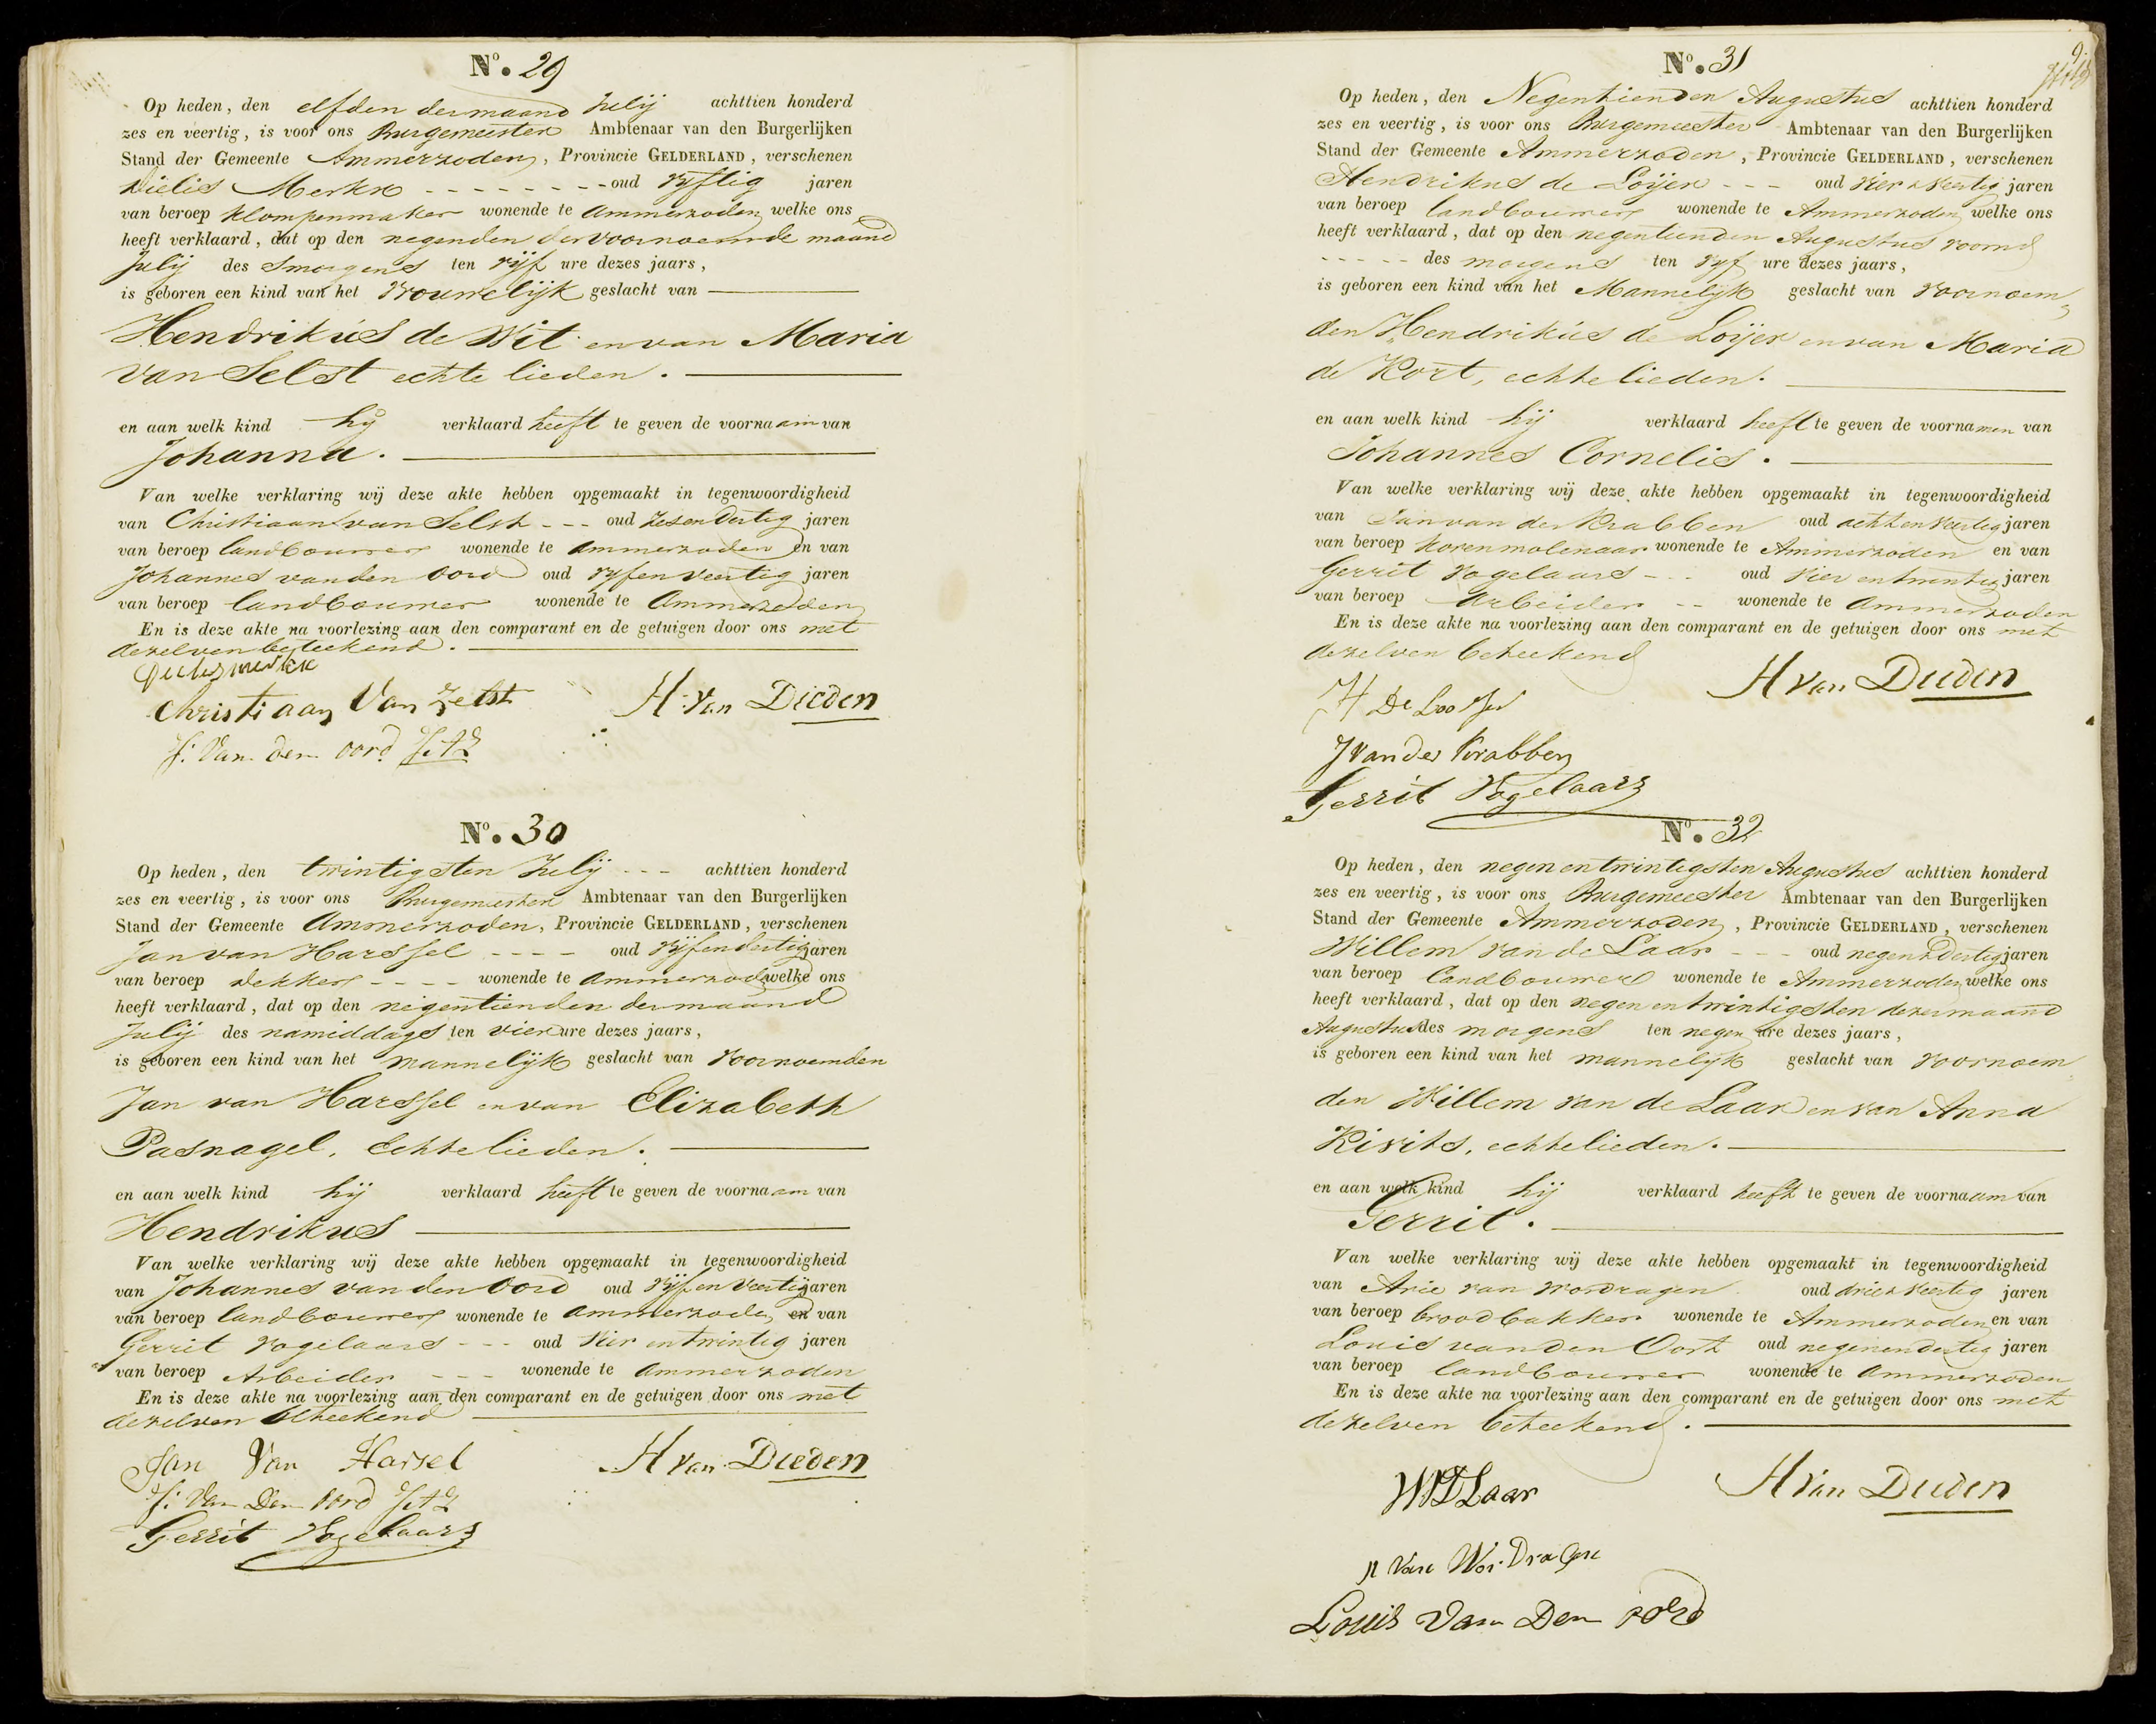 Nº. 29
Op heden, den elfden der maand Julij achttien honderd
zes en veertig, is voor ons Burgemeester Ambtenaar van den Burgerlijken
Stand der Gemeente Ammerzoden, Provincie GELDERLAND, verschenen
Dielis Merkx - - - - - - - - oud vyftig jaren
van beroep klompenmaker wonende te Ammerzoden welke ons
heeft verklaard, dat op den negenden der voornoemde maand
Julij des smorgens ten vijf ure dezes jaars,
is geboren een kind van het vrouwelijk geslacht van
Hendrikus de Wit en van Maria
van Selst echte lieden.
en aan welk kind hij verklaard heeft te geven de voornaam van
Johanna.
Van welke verklaring wij deze akte hebben opgemaakt in tegenwoordigheid
van Christiaan van Selst - - - oud zesendertig jaren
van beroep landbouwer wonende te Ammerzoden en van
Johannes van den Oord oud vyfenveertig jaren
van beroep landbouwer wonende te Ammerzoden
En is deze akte na voorlezing aan den comparant en de getuigen door ons met
dezelven beteekend.
Christiaan Van Zelst H. van Dieden
J: Van den oord
Nº. 30
Op heden, den twintigsten Julij - - - achttien honderd
zes en veertig, is voor ons Burgemeester Ambtenaar van den Burgerlijken
Stand der Gemeente Ammerzoden, Provincie GELDERLAND, verschenen
Jan van Harssel - - - - oud vijfendertig jaren
van beroep dekker - - - - wonende te Ammerzoden welke ons
heeft verklaard, dat op den negentienden der maand
Julij des namiddags ten vier ure dezes jaars,
is geboren een kind van het mannelijk geslacht van voornoemden
Jan van Harssel en van Elizabeth
Pasnagel, echtelieden.
en aan welk kind hij verklaard heeft te geven de voornaam van
Hendrikus
Van welke verklaring wij deze akte hebben opgemaakt in tegenwoordigheid
van Johannes van den Oord oud vijfenveertig jaren
van beroep landbouwer wonende te Ammerzoden en van
Gerrit Vogelaars - - - oud vier entwintig jaren
van beroep Arbeider - - - wonende te Ammerzoden
En is deze akte na voorlezing aan den comparant en de getuigen door ons met
dezelven beteekend
Jan Van Harsel H van Dieden
J: Van Den oord
Gerrit Vogelaars
Nº. 31
Op heden, den Negentienden Augustus achttien honderd
zes en veertig, is voor ons Burgemeester Ambtenaar van den Burgerlijken
Stand der Gemeente Ammerzoden, Provincie GELDERLAND, verschenen
Hendrikus de Loijer - - - oud vier & veertig jaren
van beroep landbouwer wonende te Ammerzoden welke ons
heeft verklaard, dat op den negentienden Augustus voornd
- - - - - des morgens ten vyf ure dezes jaars,
is geboren een kind van het Mannelijk geslacht van voornoem
den Hendrikus de Loijer en van Maria
de Kort, echtelieden.
en aan welk kind hij verklaard heeft te geven de voornamen van
Johannes Cornelis.
Van welke verklaring wij deze akte hebben opgemaakt in tegenwoordigheid
van Jan van der Krabben oud achtenveertig jaren
van beroep korenmolenaar wonende te Ammerzoden en van
Gerrit Vogelaars - - - oud vier entwintig jaren
van beroep Arbeider - - wonende te Ammerzoden
En is deze akte na voorlezing aan den comparant en de getuigen door ons met
dezelven beteekend
H van Dieden
H De Looijer
J van der Krabben
Gerrit Vogelaars
Nº. 32
Op heden, den negen entwintigsten Augustus achttien honderd
zes en veertig, is voor ons Burgemeester Ambtenaar van den Burgerlijken
Stand der Gemeente Ammerzoden, Provincie GELDERLAND, verschenen
Willem van de Laar - - - oud negen & dertig jaren
van beroep landbouwer wonende te Ammerzoden welke ons
heeft verklaard, dat op den negen en twintigsten dezer maand
Augustus des morgens ten negen ure dezes jaars,
is geboren een kind van het mannelijk geslacht van voornoem
den Willem van de Laar en van Anna
Kivits, echtelieden.
en aan welk kind hij verklaard heeft te geven de voornaam van
Gerrit.
Van welke verklaring wij deze akte hebben opgemaakt in tegenwoordigheid
van Arie van Wordragen oud drie & veertig jaren
van beroep broodbakker wonende te Ammerzoden en van
Louis van den Oort oud negenendertig jaren
van beroep landbouwer wonende te Ammerzoden
En is deze akte na voorlezing aan den comparant en de getuigen door ons met
dezelven beteekend.
WVD Laar H van Dieden
A Van Wordragen
Louis Van Den oord